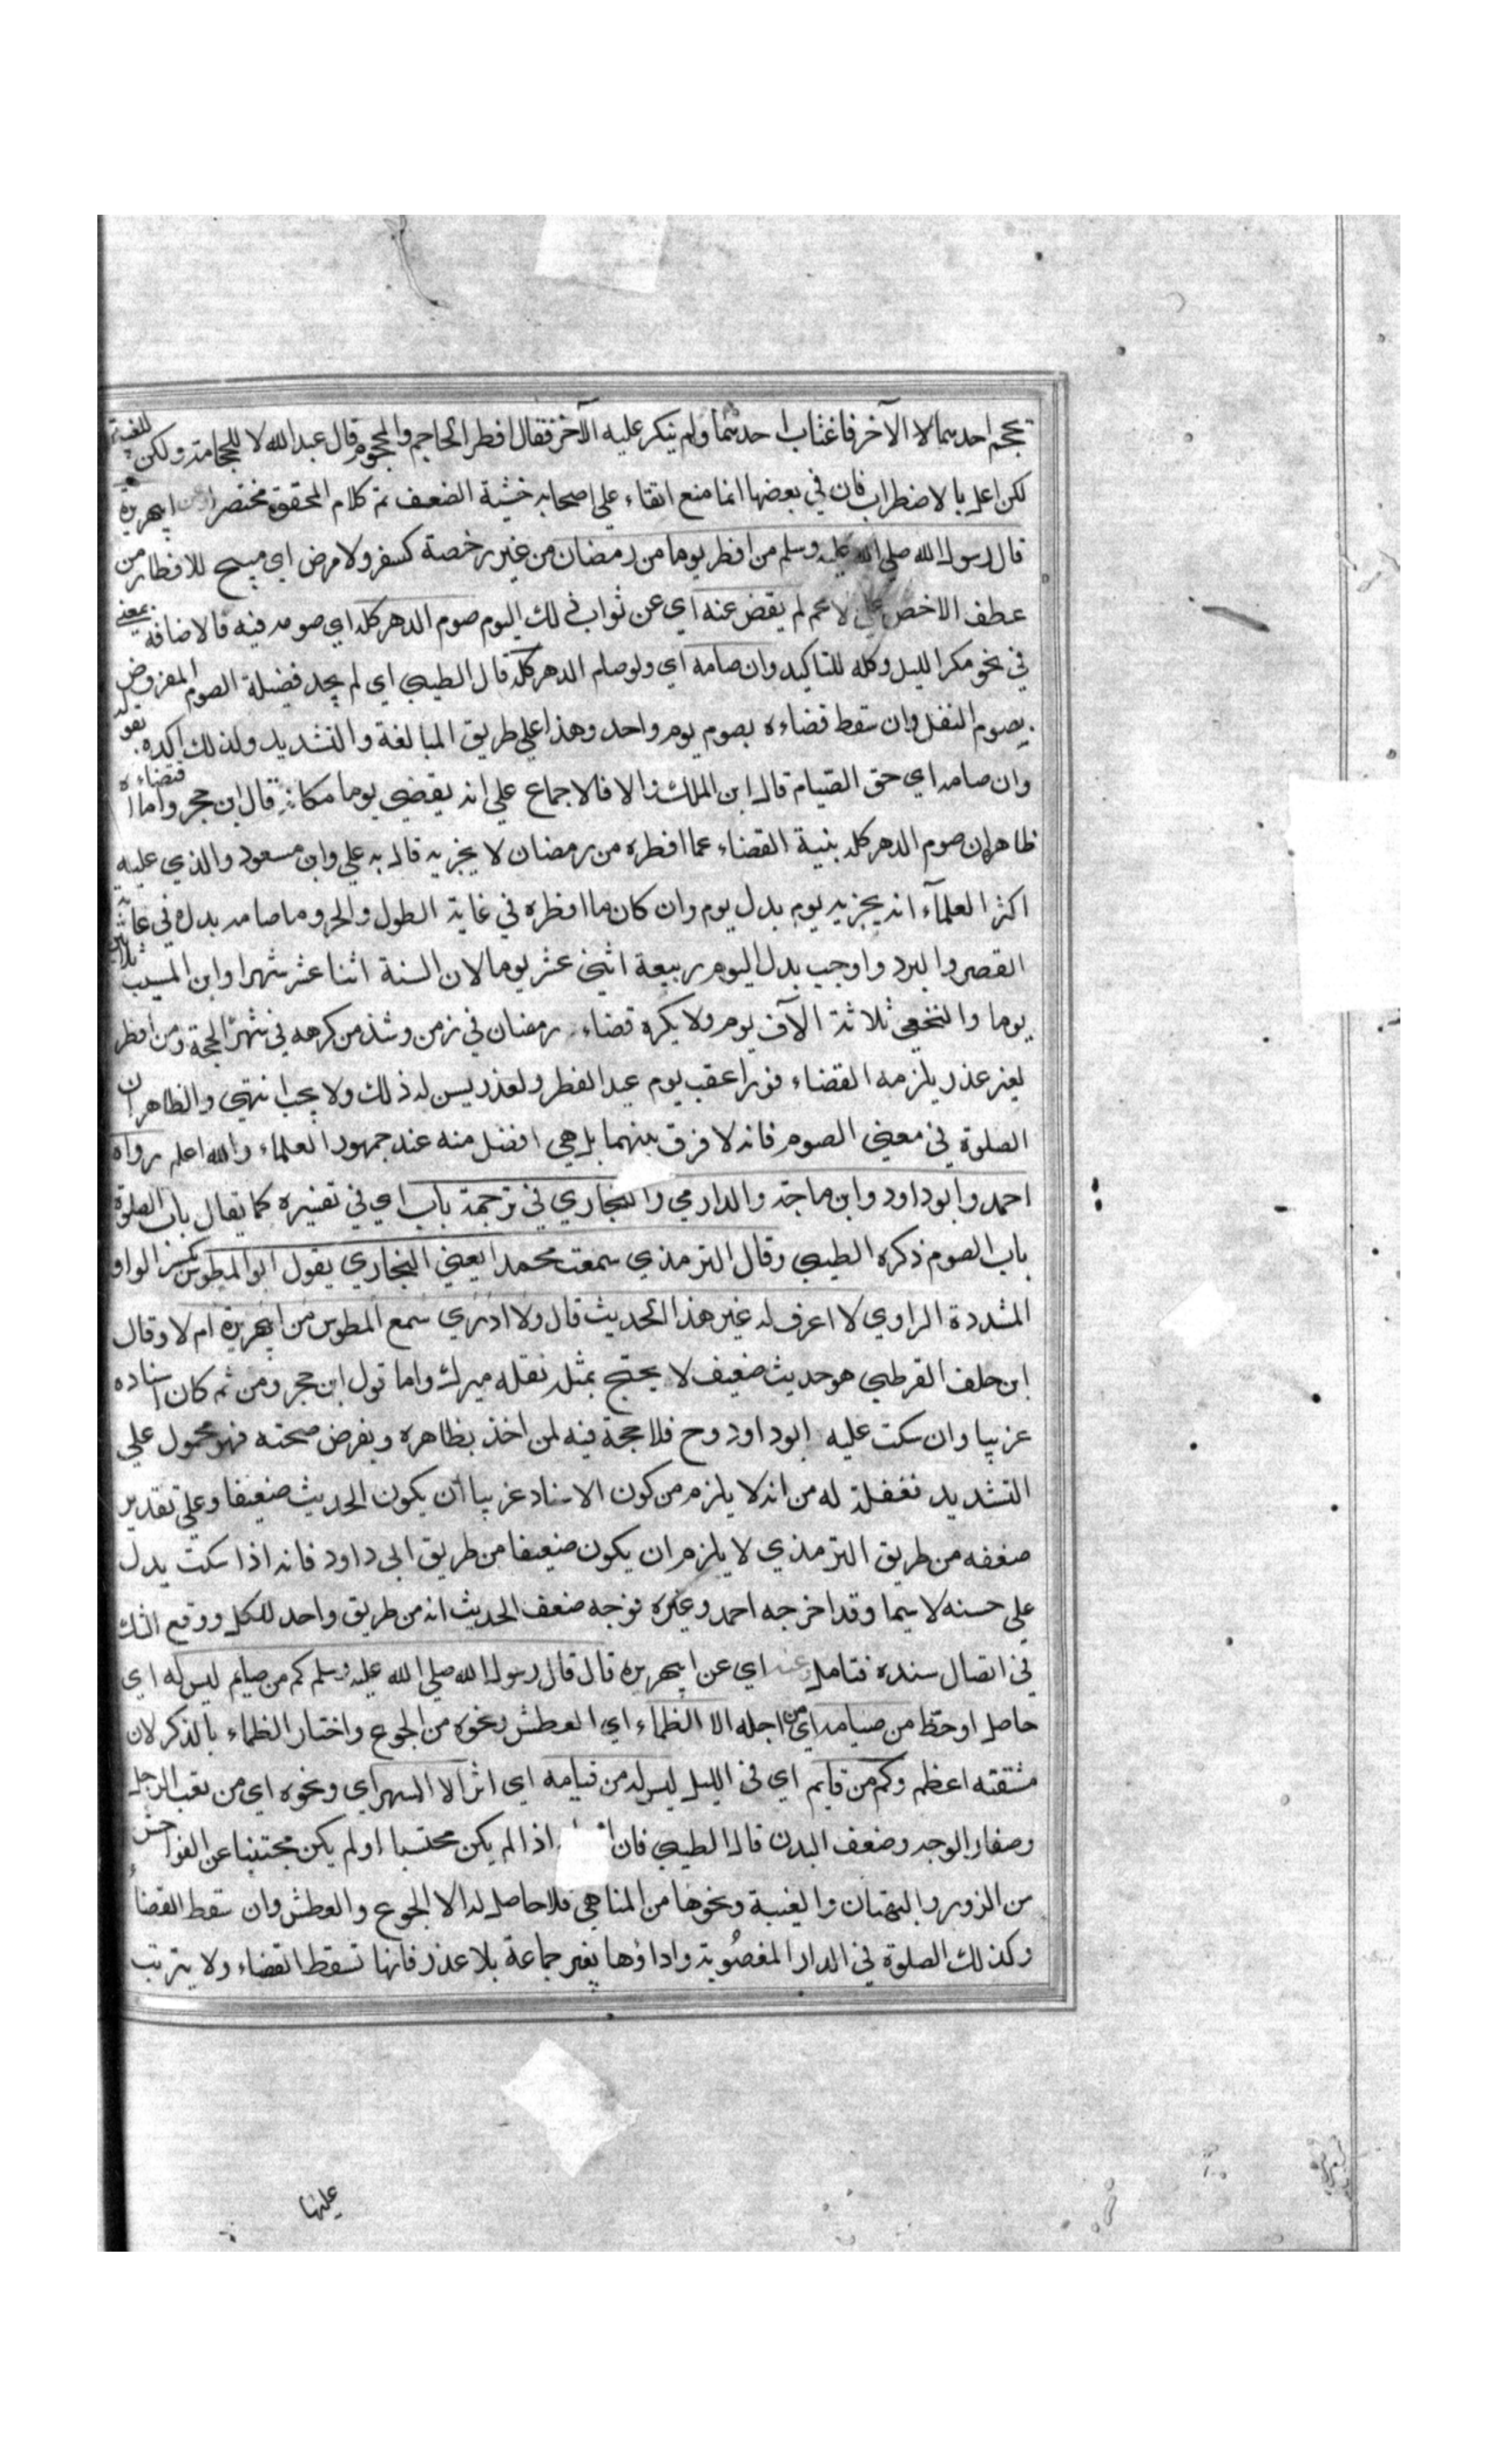 يحجم احدهما الآخر فاغتاب احدهما ولم ينكر عليه الآخر فقال افطر الحاجم والمحجوم قال عبد الله لا للحجامة ولكن للغيبة
لكن اعل بالاضطراب فان في بعضها انما منع ابقاء على اصحابه خشية الضعف تم كلام المحقق مختصرا وعن ابي هريرة
قال رسول الله صلى الله عليه وسلم من افطر يوما من رمضان من غير رخصة كسفر ولا مرض اي مبيح للافطار من
عطف الاخص على الاعم لم يقض عنه اي عن ثواب ذلك اليوم صوم الدهر كله اي صومه فيه فالاضافة بمعنى
في نحو مكر الليل وكله للتاكيد وان صامه اي ولو صام الدهر كله قال الطيبي اي لم يجد فضيلة الصوم المفروض
بصوم النفل وان سقط قضاءه بصوم يوم واحد وهذا على طريق المبالغة والتشديد ولذلك اكده بقوله
وان صامه اي حق الصيام قال ابن الملك والا فالاجماع على انه يقضي يوما مكانه قال ابن حجر وما اقتضاءه
ظاهره ان صوم الدهر كله بنية القضاء عما افطره من رمضان لا يجزيه قال به علي وابن مسعود والذي عليه
اكثر العلمآء انه يجزيه يوم بدل يوم وان كان ما افطره في غاية الطول والحر وما صامه بدله في غاية
القصر والبرد واوجب بدل اليوم ربيعة اثني عشر يوما لان السنة اثنا عشر شهرا وابن المسيب ثلاثين
يوما والنخعي ثلاثة الآف يوم ولا يكره قضاء رمضان في زمن وشذ من كرهه في شهر الحجة ومن افطر
لغير عذر يلزمه القضاء فورا عقب يوم عيد الفطر ولعذر يسن له ذلك ولا يجب انتهى والظاهر ان
الصلوة في معنى الصوم فانه لا فرق بينهما بل هي افضل منه عند جمهور العلماء والله اعلم رواه
احمد وابو داود وابن ماجة والدارمي والبخاري في ترجمة باب اي في تفسيره كما يقال باب الصلوة
باب الصوم ذكره الطيبي وقال الترمذي سمعت محمدا يعني البخاري يقول ابو المطوس بكسر الواو
المشددة الراوي لا اعرف له غير هذا الحديث قال ولا ادري سمع المطوس من ابي هريرة ام لا وقال
ابن خلف القرطبي هو حديث ضعيف لا يحتج بمثله نقله ميرك واما قول ابن حجر ومن ثم كان اسناده
غريبا وان سكت عليه ابو داود وح فلا حجة فيه لمن اخذ بظاهره وبفرض صحته فهو محمول على
التشديد فغفلة له من انه لا يلزم من كون الاسناد غريبا ان يكون الحديث ضعيفا وعلى تقدير
ضعفه من طريق الترمذي لا يلزم ان يكون ضعيفا من طريق ابي داود فانه اذا سكت يدل
على حسنه لا سيما وقد اخرجه احمد وغيره فوجه ضعف الحديث انه من طريق واحد للكل ووقع الشك
في اتصال سنده فتامل وعنه اي عن ابي هريرة قال قال رسول الله صلى الله عليه وسلم كم من صايم ليس له اي
حاصل او حظ من صيامه اي من اجله الا الظماء اي العطش ونحوه من الجوع واختار الظماء بالذكر لان
مشقته اعظم وكم من قايم اي في الليل ليس له من قيامه اي اثر الا السهر اي ونحوه اي من تعب الرجل
وصفار الوجه وضعف البدن قال الطيبي فان اذا لم يكن محتسبا او لم يكن مجتنبا عن الفواحش
من الزور والبهتان والغيبة ونحوها من المناهي فلا حاصل له الا الجوع والعطش وان سقط القضاء
وكذلك الصلوة في الدار المغصوبة واداؤها بغير جماعة بلا عذر فانها تسقط القضاء ولا يترتب
عليها